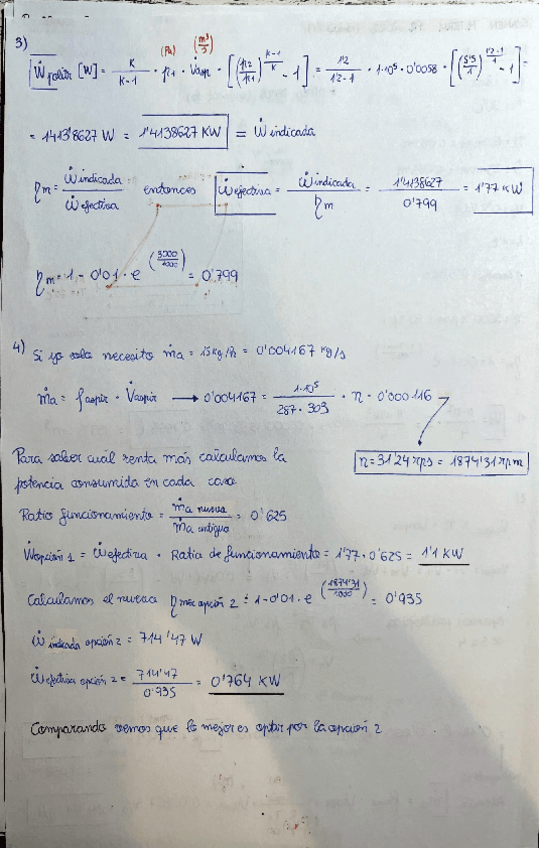 3)
(Pa) (m³/s)
Ẇpolitr [W] = K/(K-1) · p1 · V̇asp · [(p2/p1)^((K-1)/K) - 1] = 1'2/(1'2-1) · 1·10⁵ · 0'0058 · [(5'5/1)^((1'2-1)/1'2) - 1] =
= 1413'8627 W = 1'4138627 KW = Ẇ indicada
ηm = Ẇindicada/Ẇefectiva entonces Ẇefectiva = Ẇindicada/ηm = 1'4138627/0'799 = 1'77 KW
ηm = 1 - 0'01 · e^(3000/1000) = 0'799
4) Si yo solo necesito ṁa = 15 kg/h = 0'004167 kg/s
ṁa = ρaspir · V̇aspir → 0'004167 = 1·10⁵/(287·303) · n · 0'000116
n = 31'24 rps = 1874'31 rpm
Para saber cuál renta más calculamos la
potencia consumida en cada caso
Ratio funcionamiento = ṁa nueva/ṁa antigua = 0'625
Ẇopción 1 = Ẇefectiva · Ratio de funcionamiento = 1'77 · 0'625 = 1'1 KW
Calculamos el nuevo ηmec opción 2 = 1 - 0'01 · e^(1874'31/1000) = 0'935
Ẇindicada opción 2 = 714'47 W
Ẇefectiva opción 2 = 714'47/0'935 = 0'764 KW
Comparando vemos que lo mejor es optar por la opción 2